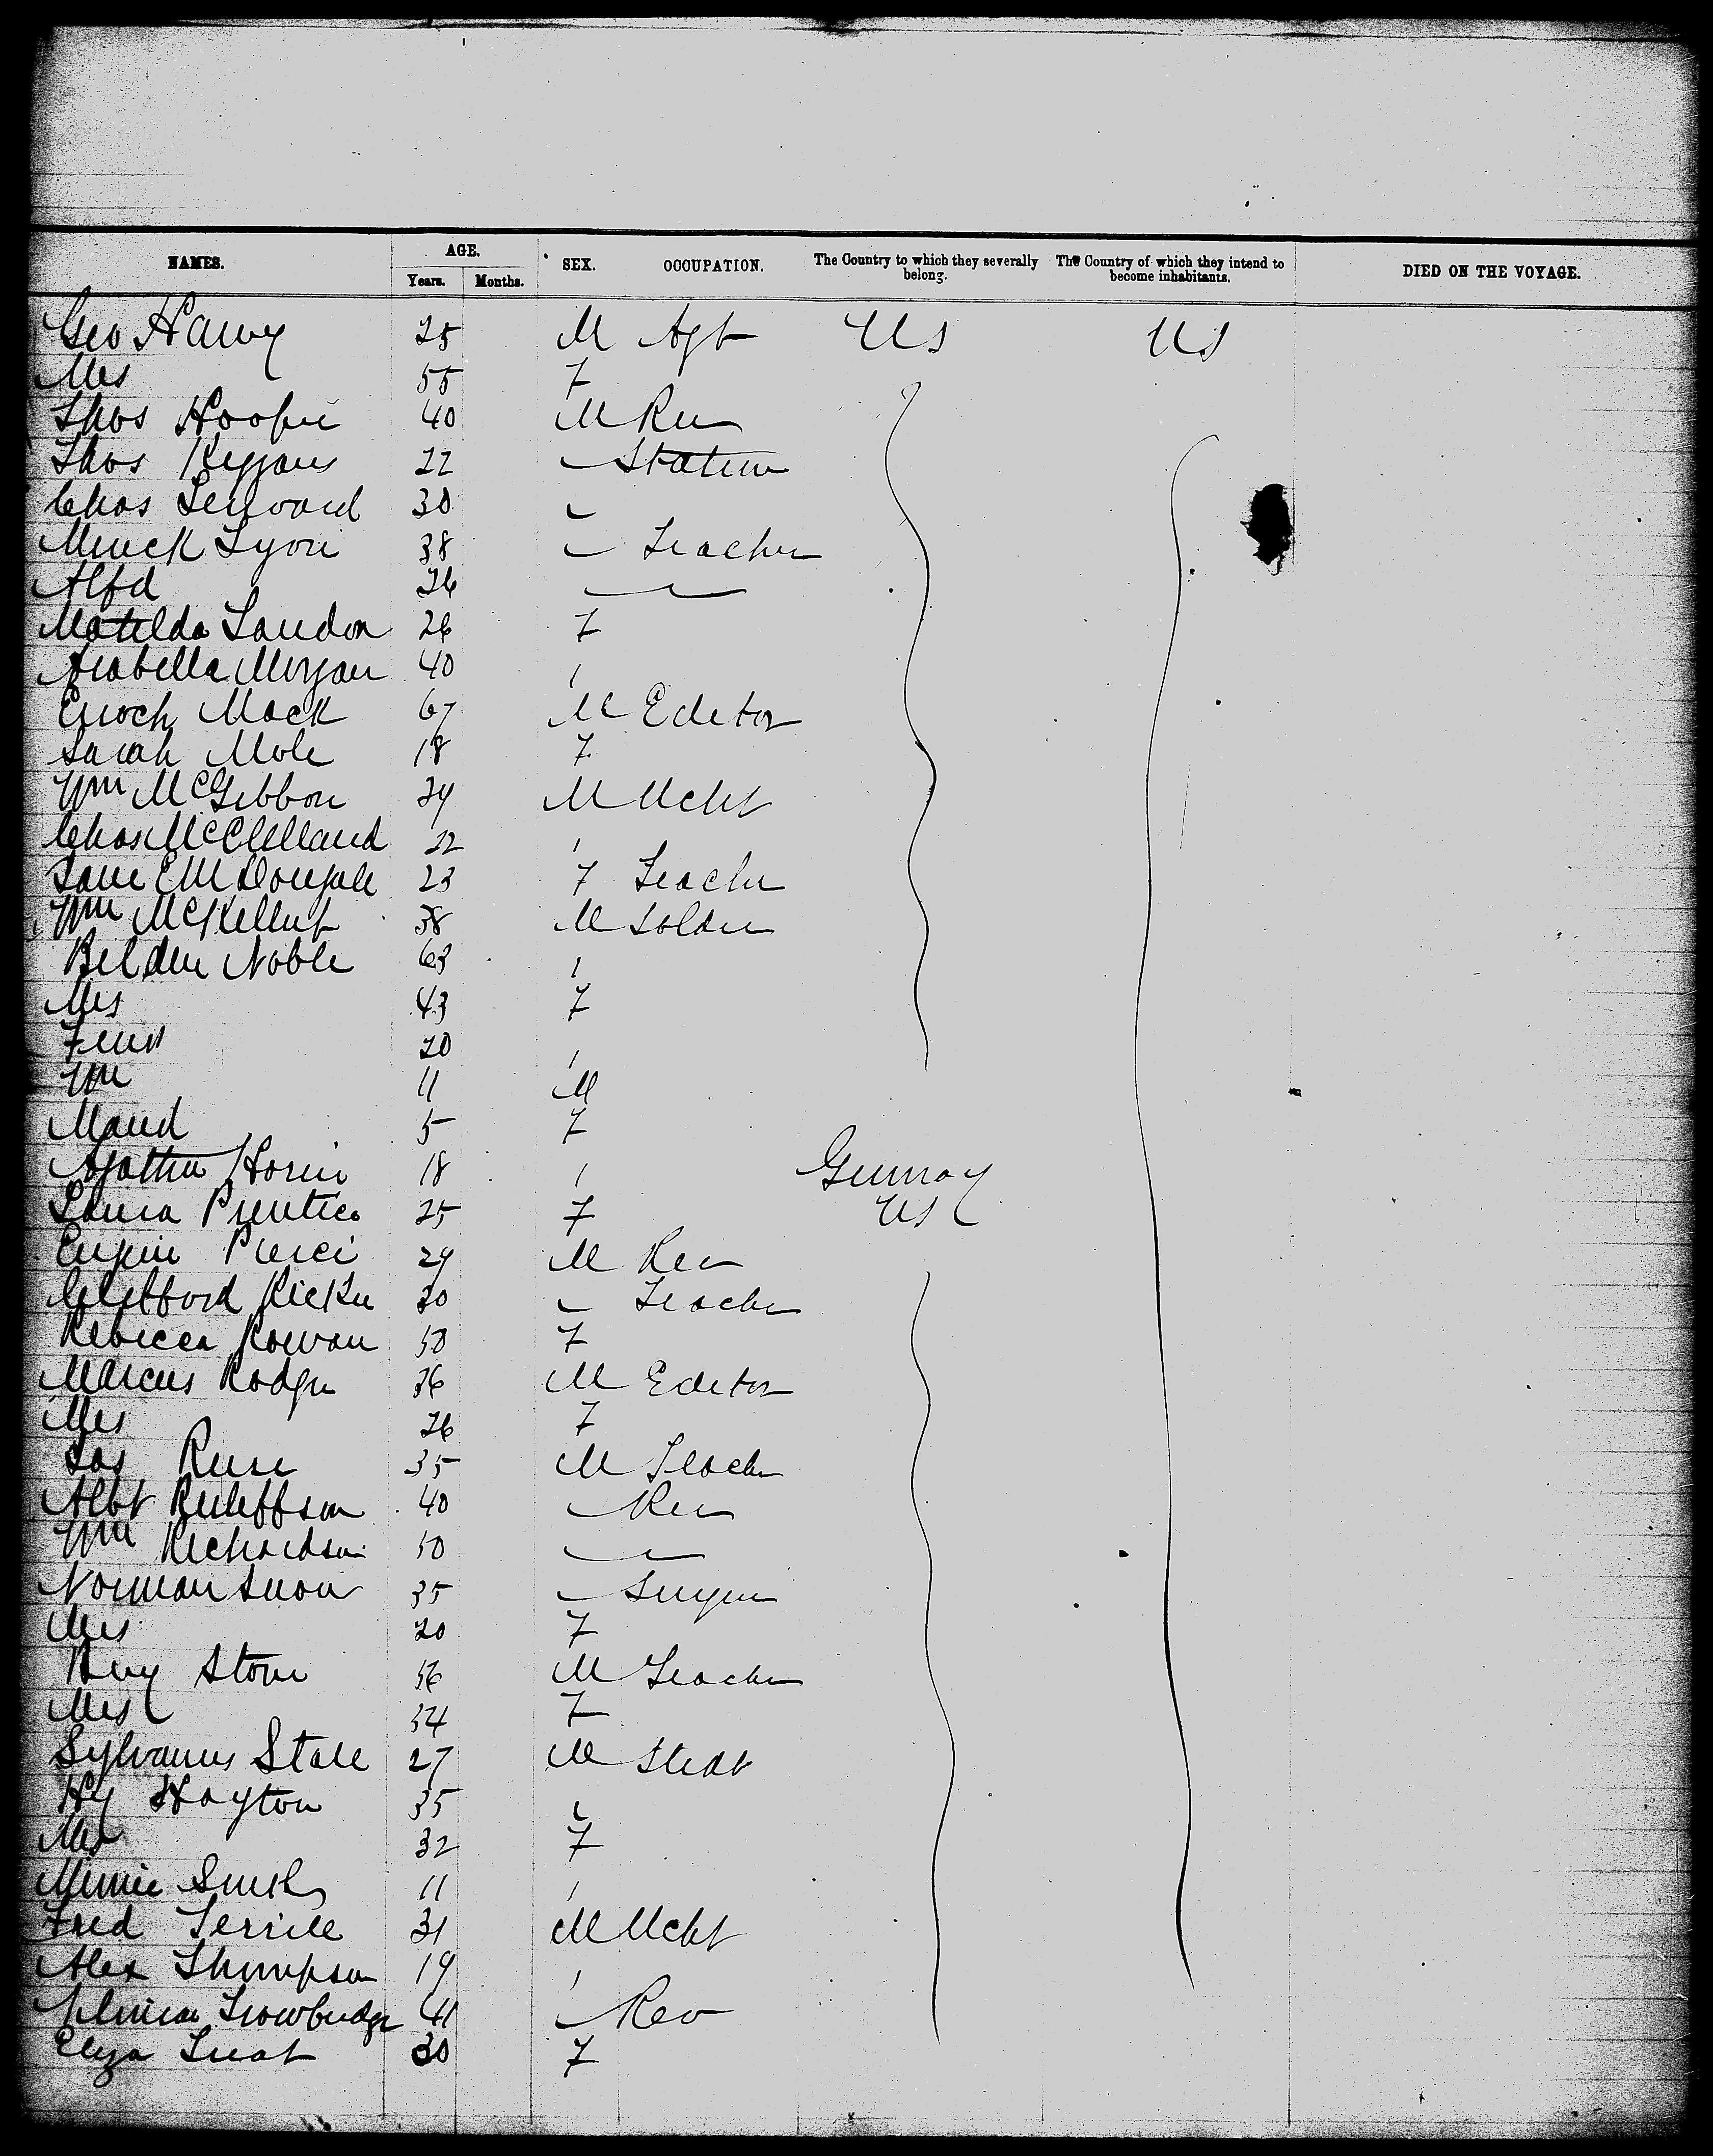 NAMES. AGE. Years. Months. SEX. OCCUPATION. The Country to which they severally belong. The Country of which they intend to become inhabitants. DIED ON THE VOYAGE.
Geo Harvy 25 M Agt US US
Mrs 55 F
Thos Hooper 40 M Rev
Thos 22 Station
Chas 30
Lyon 38 Teacher
Alfd 26
Matilda Landon 26 F
Arabella Morgan 40
Enoch Mack 67 M Editor
Sarah Mole 18 F
Wm McGibbon 34 M Mcht
Chas McClelland 22
Jane E McDougall 23 F Teacher
Wm 38 M Soldier
Belden Noble 63
Mrs 43 F
20
Wm 11 M
Maud 5 F
Agatha 18 Germay
Laura Prentice 25 F US
Eugene Pierce 29 M Rev
30 Teacher
Rebecca Rowan 50 F
Marcus Rodger 36 M Editor
Mrs 26 F
Jas 35 M Teacher
Albt 40 Rev
Wm Richardson 50
Norman Snow 35 Surgeon
Mrs 20 F
Stone 56 M Teacher
Mrs 54 F
Sylvanus Stall 27 M Stedt
Hy 35
Mrs 32 F
Minnie Smith 11
Fred Terrill 31 M Mcht
Alex Thompson 19
Trowbridge 41 Rev
Eliza Treat 30 F